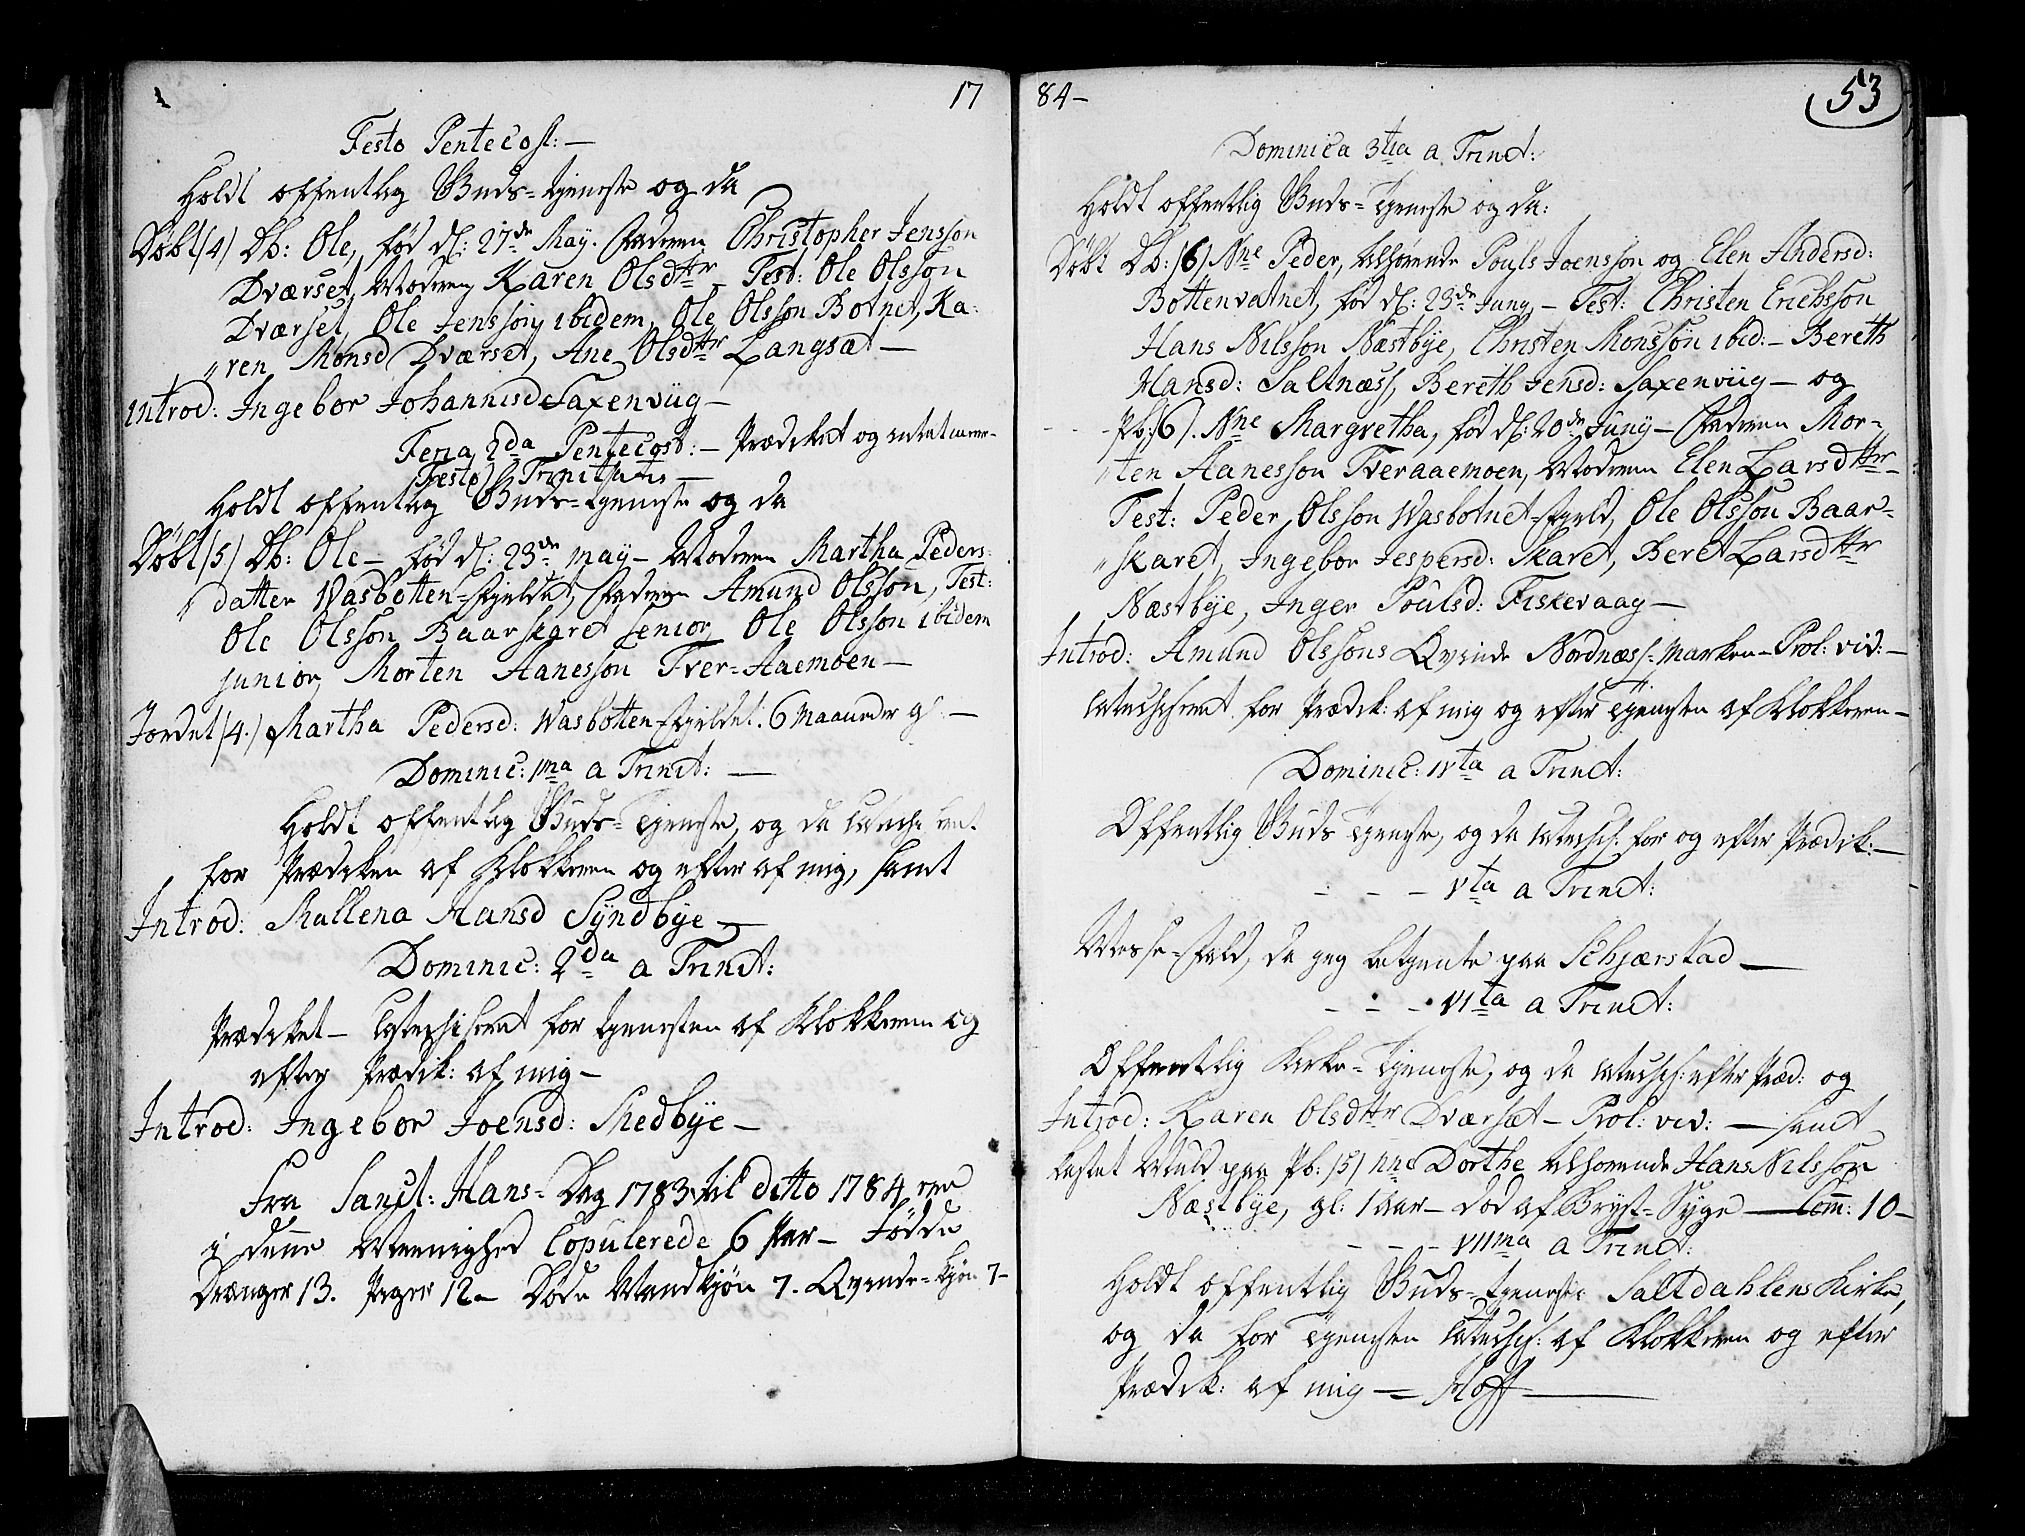 17
Festo Pentecost: —
Holdt offentlig Guds-tjeneste og da
Døbt (4) Db: Ole, fød d: 27de May. Faderen Christopher Jensson
Dværset, Moderen Karen Olsdttr — Test: Ole Olsson
Dværset, Ole Jensson ibidem, Ole Olsson Botnet, Ka:
„ren Monsd Dværset, Ane Olsdttr Langsæt —
Introd: Ingebor Johannisd Saxenviig —
Feria 2da Pentecost: — Prædiket og intet mere —
Festo Trinitatis —
Holdt offentlig Guds-tjeneste og da
Døbt (5) Db: Ole — fød d: 23de May — Moderen Martha Peders:
„datter Wasbotten-fjeldet, Faderen Amund Olsson, Test:
Ole Olsson Baarskaret senior, Ole Olsson ibidem
junior, Morten Aanesson Tver-Aaemoen —
Jordet (4.) Martha Pedersd: Wasbotten-fjeldet. 6 Maaneder gl: —
Dominic: 1ma a Trinit: —
Holdt offentlig Guds-Tjeneste, og da
for Prædiken af Klokkeren og efter af mig, samt
Introd: Mallena Hansd Syndbye —
Dominic: 2da a Trinit:
Prædiket — Catechiseret for tjenesten af Klokkeren og
efter Prædik: af mig —
Introd: Ingebor Joensd: Medbye —
Fra Sanct: Hans-Dag 1783 til ditto 1784 ere
i denne Meenighed Copulerede 6 Par — Fødde
Drænger 13. Piger 12 — Døde Mandkjøn 7. Qvinde-kjøn 7 —
84 —
53
Dominica 3tia a Trinit:
Holdt offentlig Guds-Tjeneste og da:
Døbt Db: (6) Nne Peder, tilhørende Pouls Joensson og Elen Andersd:
Bottenvatnet, fød d: 23de Juny — Test: Christen Erichsson
Hans Nilsson Næstbye, Christen Monsson ibid: — Bereth
Hansd: Saltnæss, Bereth Jensd: Saxenviig — og
- - - Pb: (6). Nne Margretha, fød d: 20de Juny — Faderen Mor-
„ten Aanesson Tveraaemoen, Moderen Elen Larsdttr —
Test: Peder Olsson Wasbotnet-fjeld, Ole Olsson Baar-
„skaret, Ingebor Jespersd: Skaret, Beret Larsdttr
Næstbye, Inger Poulsd: Fiskevaag —
Introd: Amund Olssons Qvinde Nordnæss-Marken — Prol: vid: —
Catechiseret for Prædik: af mig og efter Tjenesten af Klokkeren —
Dominic: IVta a Trinit:
Offentlig Guds Tjeneste, og da Catech: for og efter Prædik: —
- - - Vta a Trinit:
Messe-fald, da jeg betjente paa Schjærstad —
- - - VIta a Trinit:
Offentlig Kirke-Tjeneste, og da Catech: efter Præd: og
Introd: Karen Olsdttr Dværsæt — Prol: vid: — samt
kastet Muld paa Pb: (5) nne Dorthe tilhørende Hans Nilsson
Næstbye, gl: 1 Aar — død af Bryst-Syge — Com: 10 —
- - - VIIma a Trinit:
Holdt offentlig Guds-tjeneste Saltdahlens Kirke,
og da for Tjenesten Catech: af Klokkeren og efter
Prædik: af mig — Hoff —